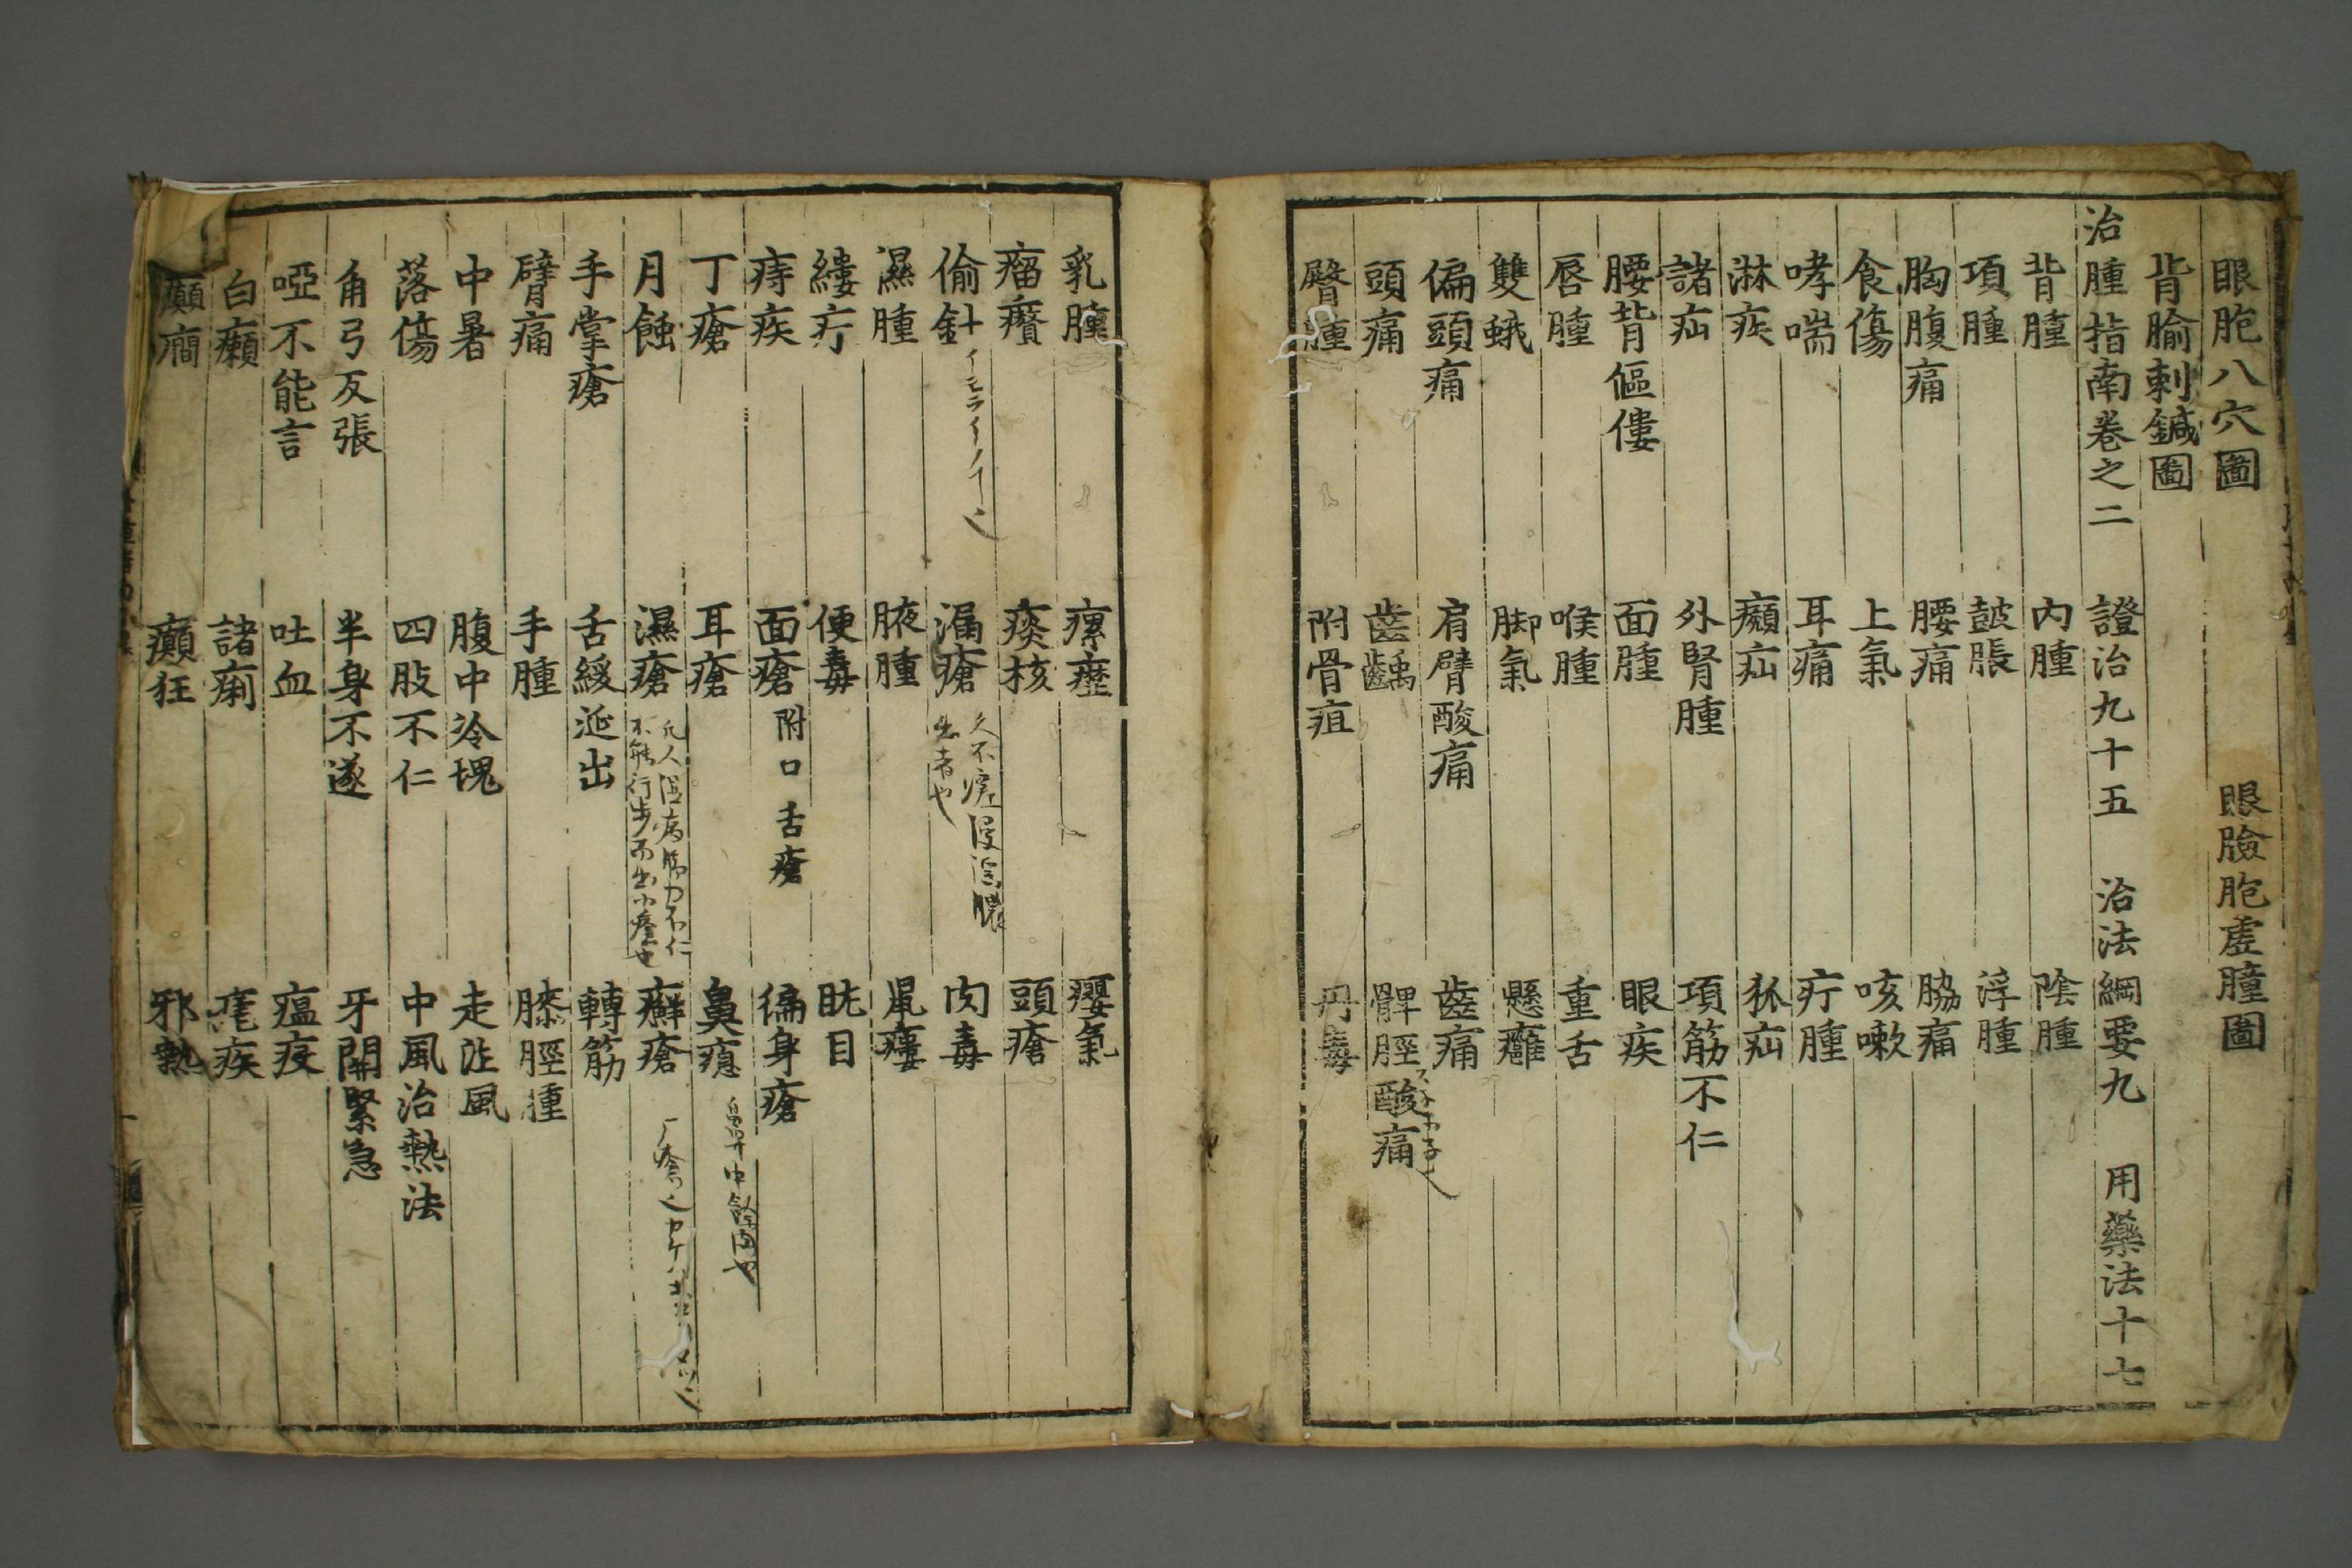 眼胞八穴圖 眼臉胞虛腫圖
背腧刺鍼圖
治腫指南卷之二 證治九十五 治法綱要九 用藥法十七
背腫 內腫 陰腫
項腫 皷脹 浮腫
胸腹痛 腰痛 脇痛
食傷 上氣 咳嗽
哮喘 耳痛 疔腫
淋疾 㿗疝 狐疝
諸疝 外腎腫 項筋不仁
腰背傴僂 面腫 眼疾
唇腫 喉腫 重舌
雙蛾 脚氣 懸癰
偏頭痛 肩臂酸痛 齒痛
頭痛 齒齲 髀脛酸痛
臀腫 附骨疽 丹毒
乳腫 瘰癧 癭氣
瘤癠 痰核 頭瘡
偷針 漏瘡 久不瘥浸淫膿出者也 肉毒
濕腫 腋腫 鼠瘻
縷疔 便毒 眈目
痔疾 面瘡 附口舌瘡 徧身瘡
丁瘡 耳瘡 鼻瘜 鼻中餘肉也
月蝕 濕瘡 癬瘡
手掌瘡 舌緩涎出 轉筋
臂痛 手腫 膝脛腫
中暑 腹中冷塊 走注風
落傷 四肢不仁 中風治熱法
角弓反張 半身不遂 牙關緊急
啞不能言 吐血 瘟疫
白癩 諸痢 瘧疾
癲癇 癲狂 邪熱